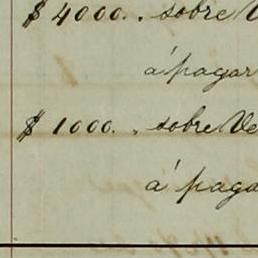 $ 4000. . sobre V
á pagar
$ 1000. . sobre Ve
á paga